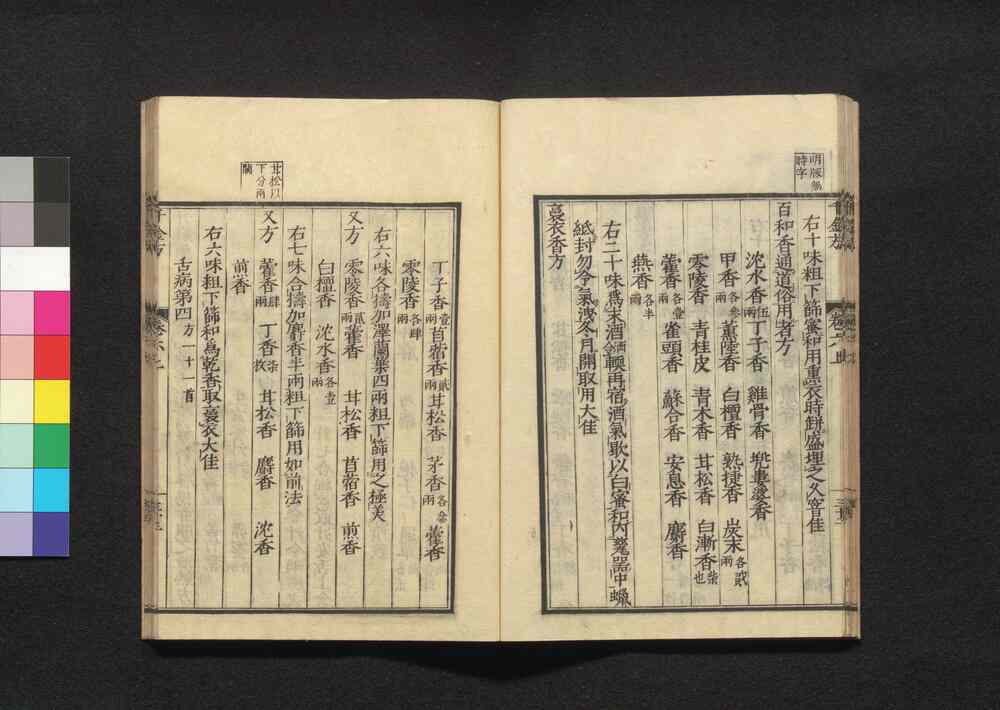 明版無
時字
右十味粗下篩蜜和用熏衣時餠盛埋之久窨佳
百和香通道俗用者方
沈水香伍兩丁子香 雞骨香 兜婁婆香
甲香各參兩 薰陸香 白檀香 熟捷香 炭末各貳兩
零陵香 青桂皮 青木香 甘松香 白漸香柴也
藿香各壹兩 雀頭香 蘇合香 安息香 麝香
燕香各半兩
右二十味爲末酒灑令輭再宿酒氣歇以白蜜和內甆器中蠟
紙封勿令氣洩冬月開取用大佳
裛衣香方
甘松以
下分兩
闕
丁子香壹兩 苜蓿香貳兩 甘松香 茅香各叁兩 藿香
零陵香各肆兩
右六味各擣加澤蘭葉四兩粗下篩用之極美
又方 零陵香貳兩 藿香 甘松香 苜蓿香 煎香
白檀香 沈水香各壹兩
右七味合擣加麝香半兩粗下篩用如前法
又方 藿香肆兩 丁香柒枚 甘松香 麝香 沈香
煎香
右六味粗下篩和爲乾香取裛衣大佳
舌病第四方一十一首
千金方